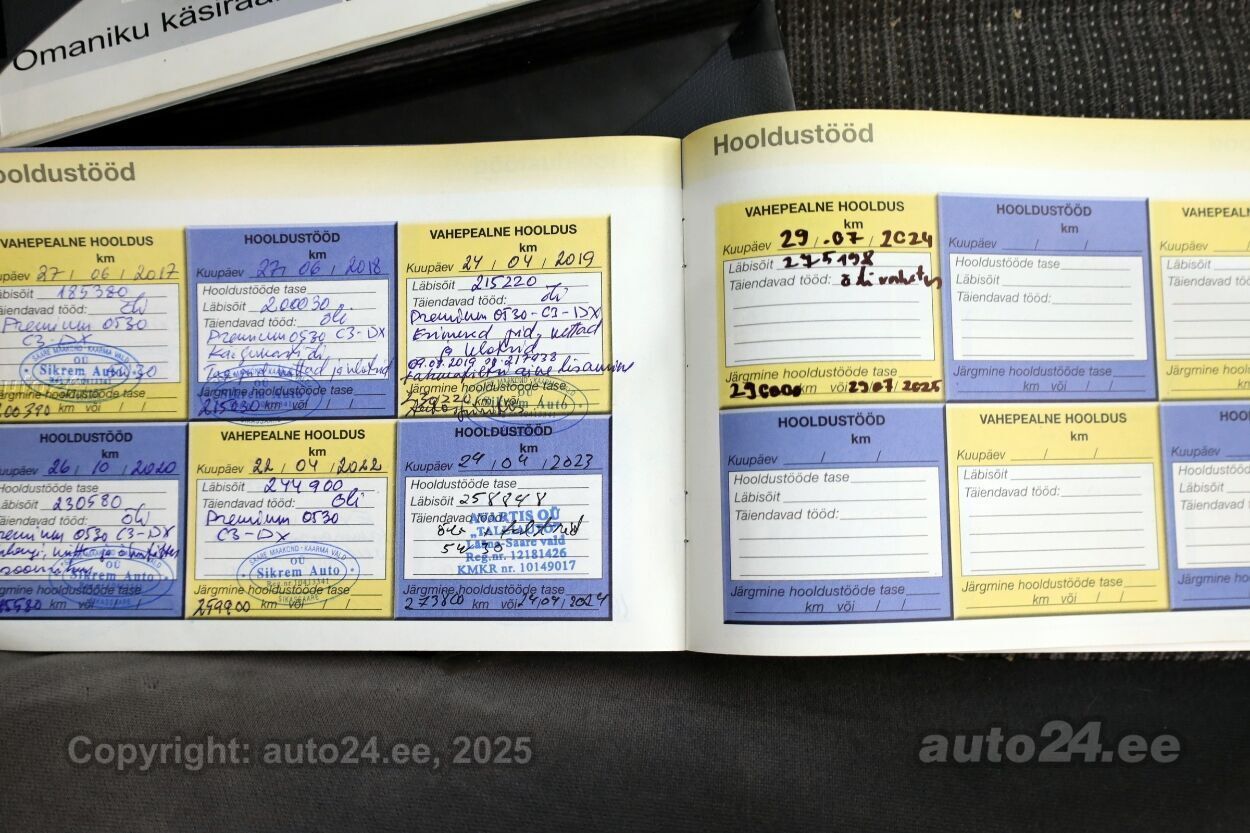 Omaniku käsiraa
ooldustööd
VAHEPEALNE HOOLDUS
km
upäev 27 / 06 / 2017
äbisõit 185380
äiendavad tööd: õli
Premium 0530
C3-DX
SAARE MAAKOND · KAARMA VALD
OÜ
Sikrem Auto
Järgmine hooldustööde tase
km või / /
HOOLDUSTÖÖD
km
Kuupäev 27 / 06 / 2018
Hooldustööde tase
Läbisõit 200030
Täiendavad tööd: õli
Premium 0530 C3-DX
Järgmine hooldustööde tase
215030 km või / /
VAHEPEALNE HOOLDUS
km
Kuupäev 24 / 04 / 2019
Läbisõit 215220
Täiendavad tööd: õli
Premium 0530-C3-DX
Esimesed pid. kettad
ja klotsid
09.07.2019 217938
Järgmine hooldustööde tase
km või / /
Sikrem Auto
HOOLDUSTÖÖD
km
uupäev 26 / 10 / 2020
Hooldustööde tase
Läbisõit 230580
Täiendavad tööd: õli
remium 0530 C3-DX
OÜ
Sikrem Auto
Järgmine hooldustööde tase
km või / /
VAHEPEALNE HOOLDUS
km
Kuupäev 22 / 04 / 2022
Läbisõit 244900
Täiendavad tööd: õli
Premium 0530
C3-DX
SAARE MAAKOND · KAARMA VALD
OÜ
Sikrem Auto
Reg.nr.10413341
SIKASSAARE
Järgmine hooldustööde tase
259900 km või / /
HOOLDUSTÖÖD
km
Kuupäev 24 / 04 / 2023
Hooldustööde tase
Läbisõit 258848
Täiendavad tööd:
AARTIS OÜ
Lääne-Saare vald
5w30
Reg.nr. 12181426
KMKR nr. 10149017
Järgmine hooldustööde tase
273800 km või 24 / 04 / 2024
Hooldustööd
VAHEPEALNE HOOLDUS
km
Kuupäev 29 / 07 / 2024
Läbisõit 275198
Täiendavad tööd: õli vahetus
Järgmine hooldustööde tase
290000 km või 29/07/2025
HOOLDUSTÖÖD
km
Kuupäev / /
Hooldustööde tase
Läbisõit
Täiendavad tööd:
Järgmine hooldustööde tase
km või / /
VAHEPEALNE
Kuupäev /
Läbisõit
Täiendavad t
Järgmine ho
HOOLDUSTÖÖD
km
Kuupäev / /
Hooldustööde tase
Läbisõit
Täiendavad tööd:
Järgmine hooldustööde tase
km või / /
VAHEPEALNE HOOLDUS
km
Kuupäev / /
Läbisõit
Täiendavad tööd:
Järgmine hooldustööde tase
km või / /
HOO
Kuupäev
Hooldustööd
Läbisõit
Täiendavad
Järgmine h
Copyright: auto24.ee, 2025
auto24.ee